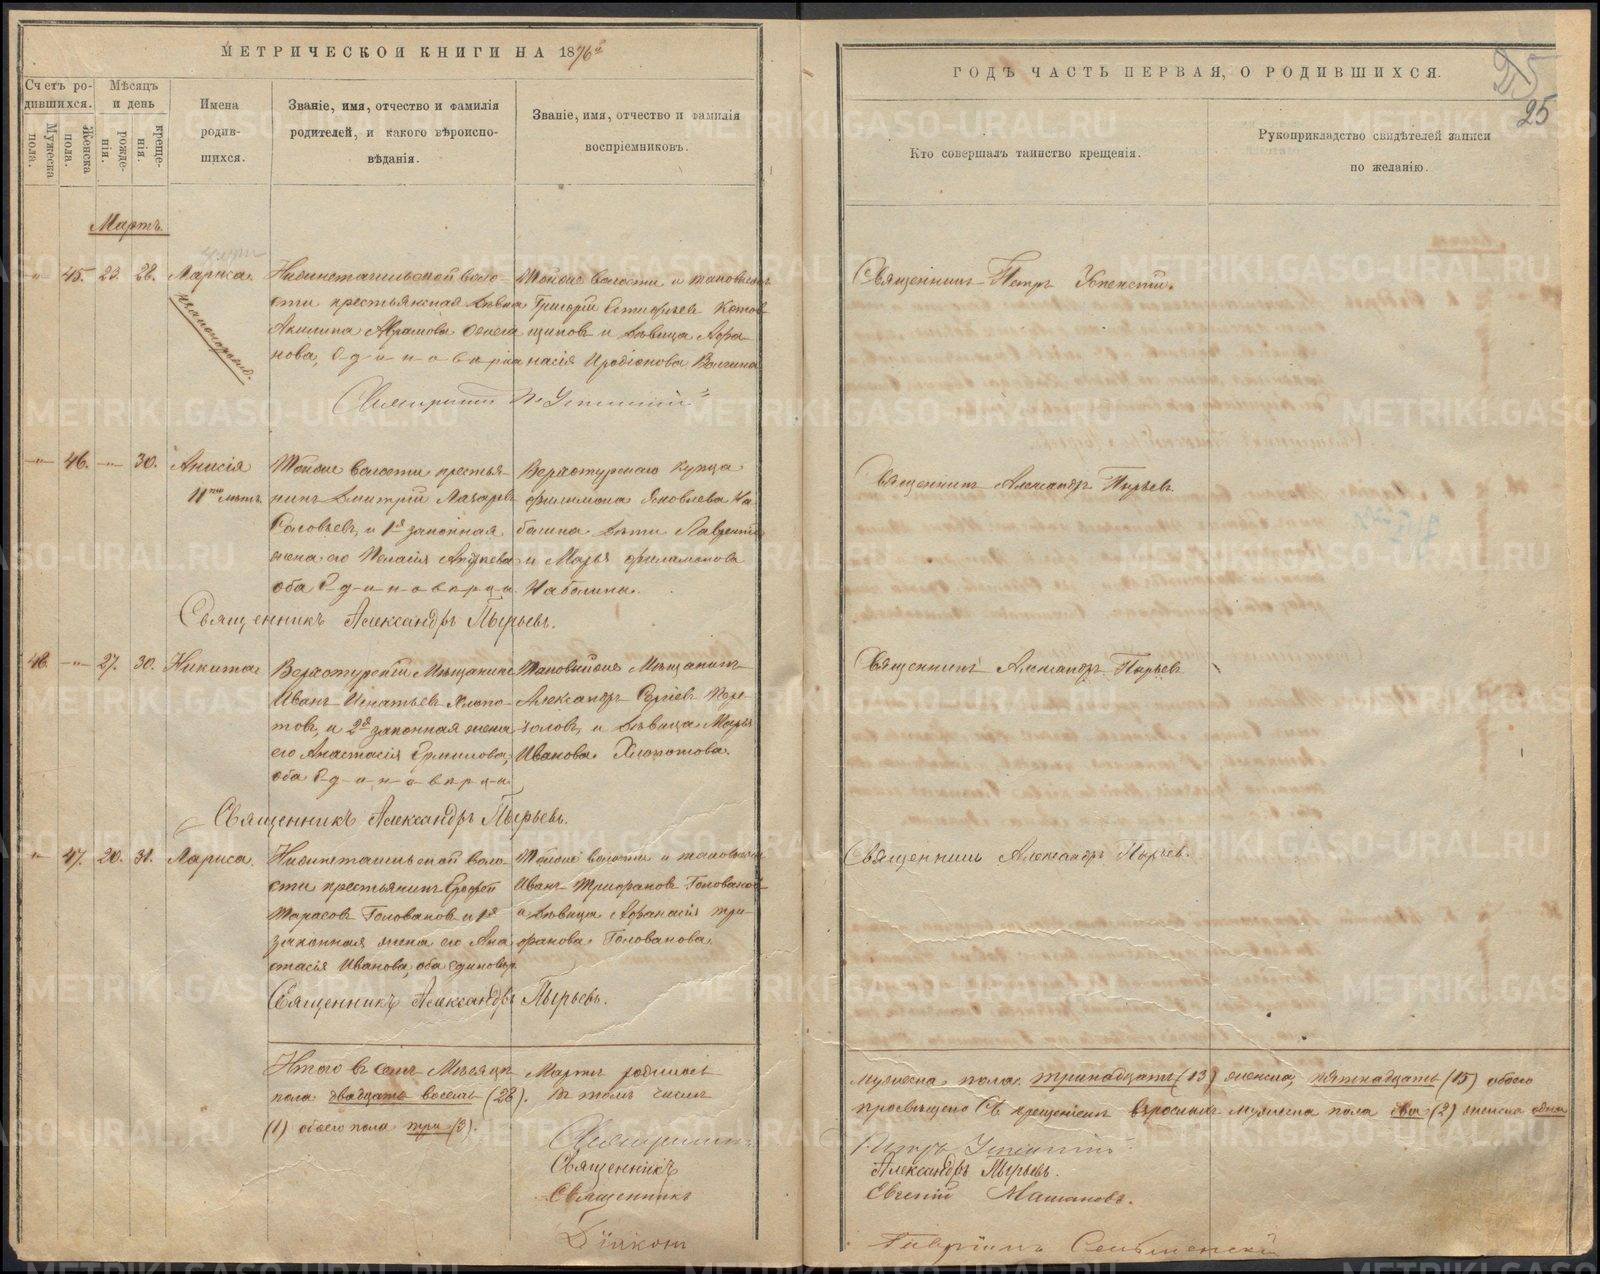 МЕТРИЧЕСКОЙ КНИГИ НА 1876й
Счетъ ро-
дившихся.
Мужеска
пола.
Женска
пола.
Мѣсяцъ
и день
рожде-
нія.
креще-
нія.
Имена
родив-
шихся.
Званіе, имя, отчество и фамилія
родителей, и какого вѣроиспо-
вѣданія.
Званіе, имя, отчество и фамилія
воспріемниковъ.
Мартъ.
45. 23. 28. Лариса.
незаконорожд.
Нижнетагильской воло-
сти крестьянская дѣвка
Акилина Абрамова
нова, единовѣрка
Тойже волости и таковыежъ
Григорій Евстифѣевъ Котов
щиковъ и дѣвица Афа-
насія Иродіонова
46. 30. Анисія
11ти лѣтъ.
Тойже волости крестья-
нинъ Дмитрій Лазаревъ
Соловьевъ, и 1я законная
жена его Пелагія
оба единовѣрцы.
Верхотурскаго купца
Филимона Яковлева
дѣти Лаврентій
и Марья Филимонова
Священникъ Александръ Пырьевъ.
48. 27. 30. Никита
Верхотурскій Мѣщанинъ
Иванъ Игнатьевъ Хлопо-
товъ, и 2я законная жена
его Анастасія Ермилова,
оба единовѣрцы
Таковыйже Мѣщанинъ
Александръ
и дѣвица Марья
Иванова Хлопотова.
Священникъ Александръ Пырьевъ.
47. 20. 31. Лариса.
Нижнетагильской воло-
сти крестьянинъ Ерофей
Тарасовъ Головановъ и 1я
законная жена его Ана
стасія Иванова, оба единовѣр.
Тойже волости и таковыежъ
Иванъ Трифоновъ Головановъ
и дѣвица Афанасія Три-
фонова Голованова.
Священникъ Александръ Пырьевъ.
Итого въ семъ Мѣсяцѣ Мартѣ родилось
пола двадцать восемь (28). Въ томъ числѣ
(1) обоего пола три (3).
Священникъ
Священникъ
Діаконъ
ГОДЪ ЧАСТЬ ПЕРВАЯ, О РОДИВШИХСЯ.
25
25
Кто совершалъ таинство крещенія.
Рукоприкладство свидѣтелей записи
по желанію.
Священникъ Петръ Успенскій.
Священникъ Александръ Пырьевъ.
Священникъ Александръ Пырьевъ
Священникъ Александръ Пырьевъ.
мужеска пола тринадцать (13) женска, пятнадцать (15) обоего
просвѣщено Св. крещеніемъ взрослыхъ мужеска пола два (2) женска одна
Петръ Успенскій
Александръ Пырьевъ.
Евгеній
METRIKI.GASO-URAL.RU